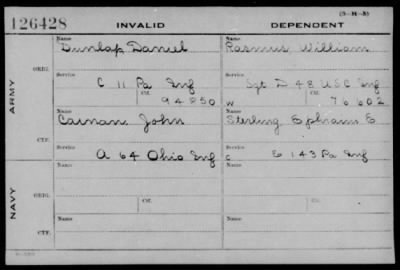 (3-M-3)
126428 INVALID DEPENDENT
Name Name
Dunlap, Daniel Rasmus, William
ORIG. Service Service
C 11 Pa Inf Sgt D 48 USC Inf
Ctf. Ctf.
94850 W 76602
ARMY
Name Name
Cainan, John Sterling Ephraim E
CTF. Service Service
A 64 Ohio Inf C E 143 Pa Inf
Name Name
ORIG.
Ctf. Ctf.
NAVY
Name Name
CTF.